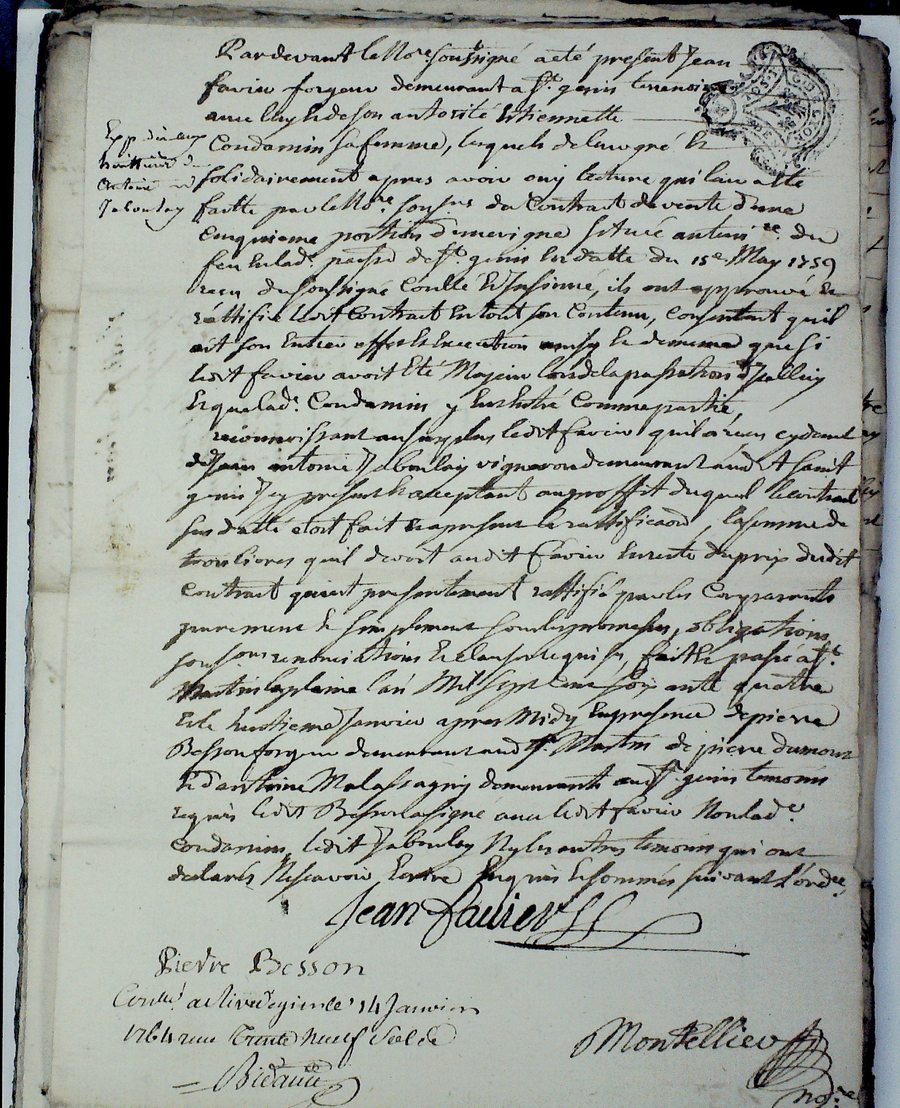 Pardevant le No.re soussigné a eté present Jean
favier forgeur demeurant a S.t genis terrenoire
avec luy et de son autorité Estiennette
Condamin sa femme, lesquels de leur gré et
solidairement apres avoir ouy lecture qui leur a eté
faitte par le No.re souss.né du Contrat de vente d'une
Cinquieme portion d'une vigne située au terri.re du
feu passé de S.t genis en datte du 15e May 1759
receu du soussigné Conllé et Insinué, ils ont approuvé et
rattifié ledit Contrat en tout son Contenu, Consentant qu'il
ait son Entier effet et Execution ainsy et de meme que si
ledit favier avoit Eté Majeur lors de la passation d'icelluy
Et que lad.e Condamin y eut eté Comme partie,
reconnoissant au surplus ledit favier qu'il a receu cydevant
de Jean antoine Jaboulay vigneron demeurant audit saint
genis Icy present et acceptant au proffit duquel le contrat
sus datté etoit fait et a present la rattification la somme de
livres qu'il devoit audit favier En reste du prix dudit
Contrat qui est presentement rattifié par les Comparants
purement et simplement sous les promesses, obligations,
renonciations et clauses requises, fait et passé a S.t
Martin la plaine l'an Mil sept Cent soixante quatre
Et le huitieme Janvier apres Midy En presence de pierre
Besson forgeur demeurant aud. S.t Martin de pierre dumont
Et d'anthoine Malassagny demeurants aud. S.t genis temoins
requis ledit Besson a signé avec ledit favier Non lad.e
Condamin, ledit Jaboulay Ny les autres temoins qui ont
declarés Ne scavoir Ecrire Enquis et sommés suivant l'ord.ce
Exp. deux
Jaboulay
Jean Favier
Pierre Besson
Conllé a Rivedegier le 14 Janvier
1764 receu Trente Neuf Sols
Montellier
No.re